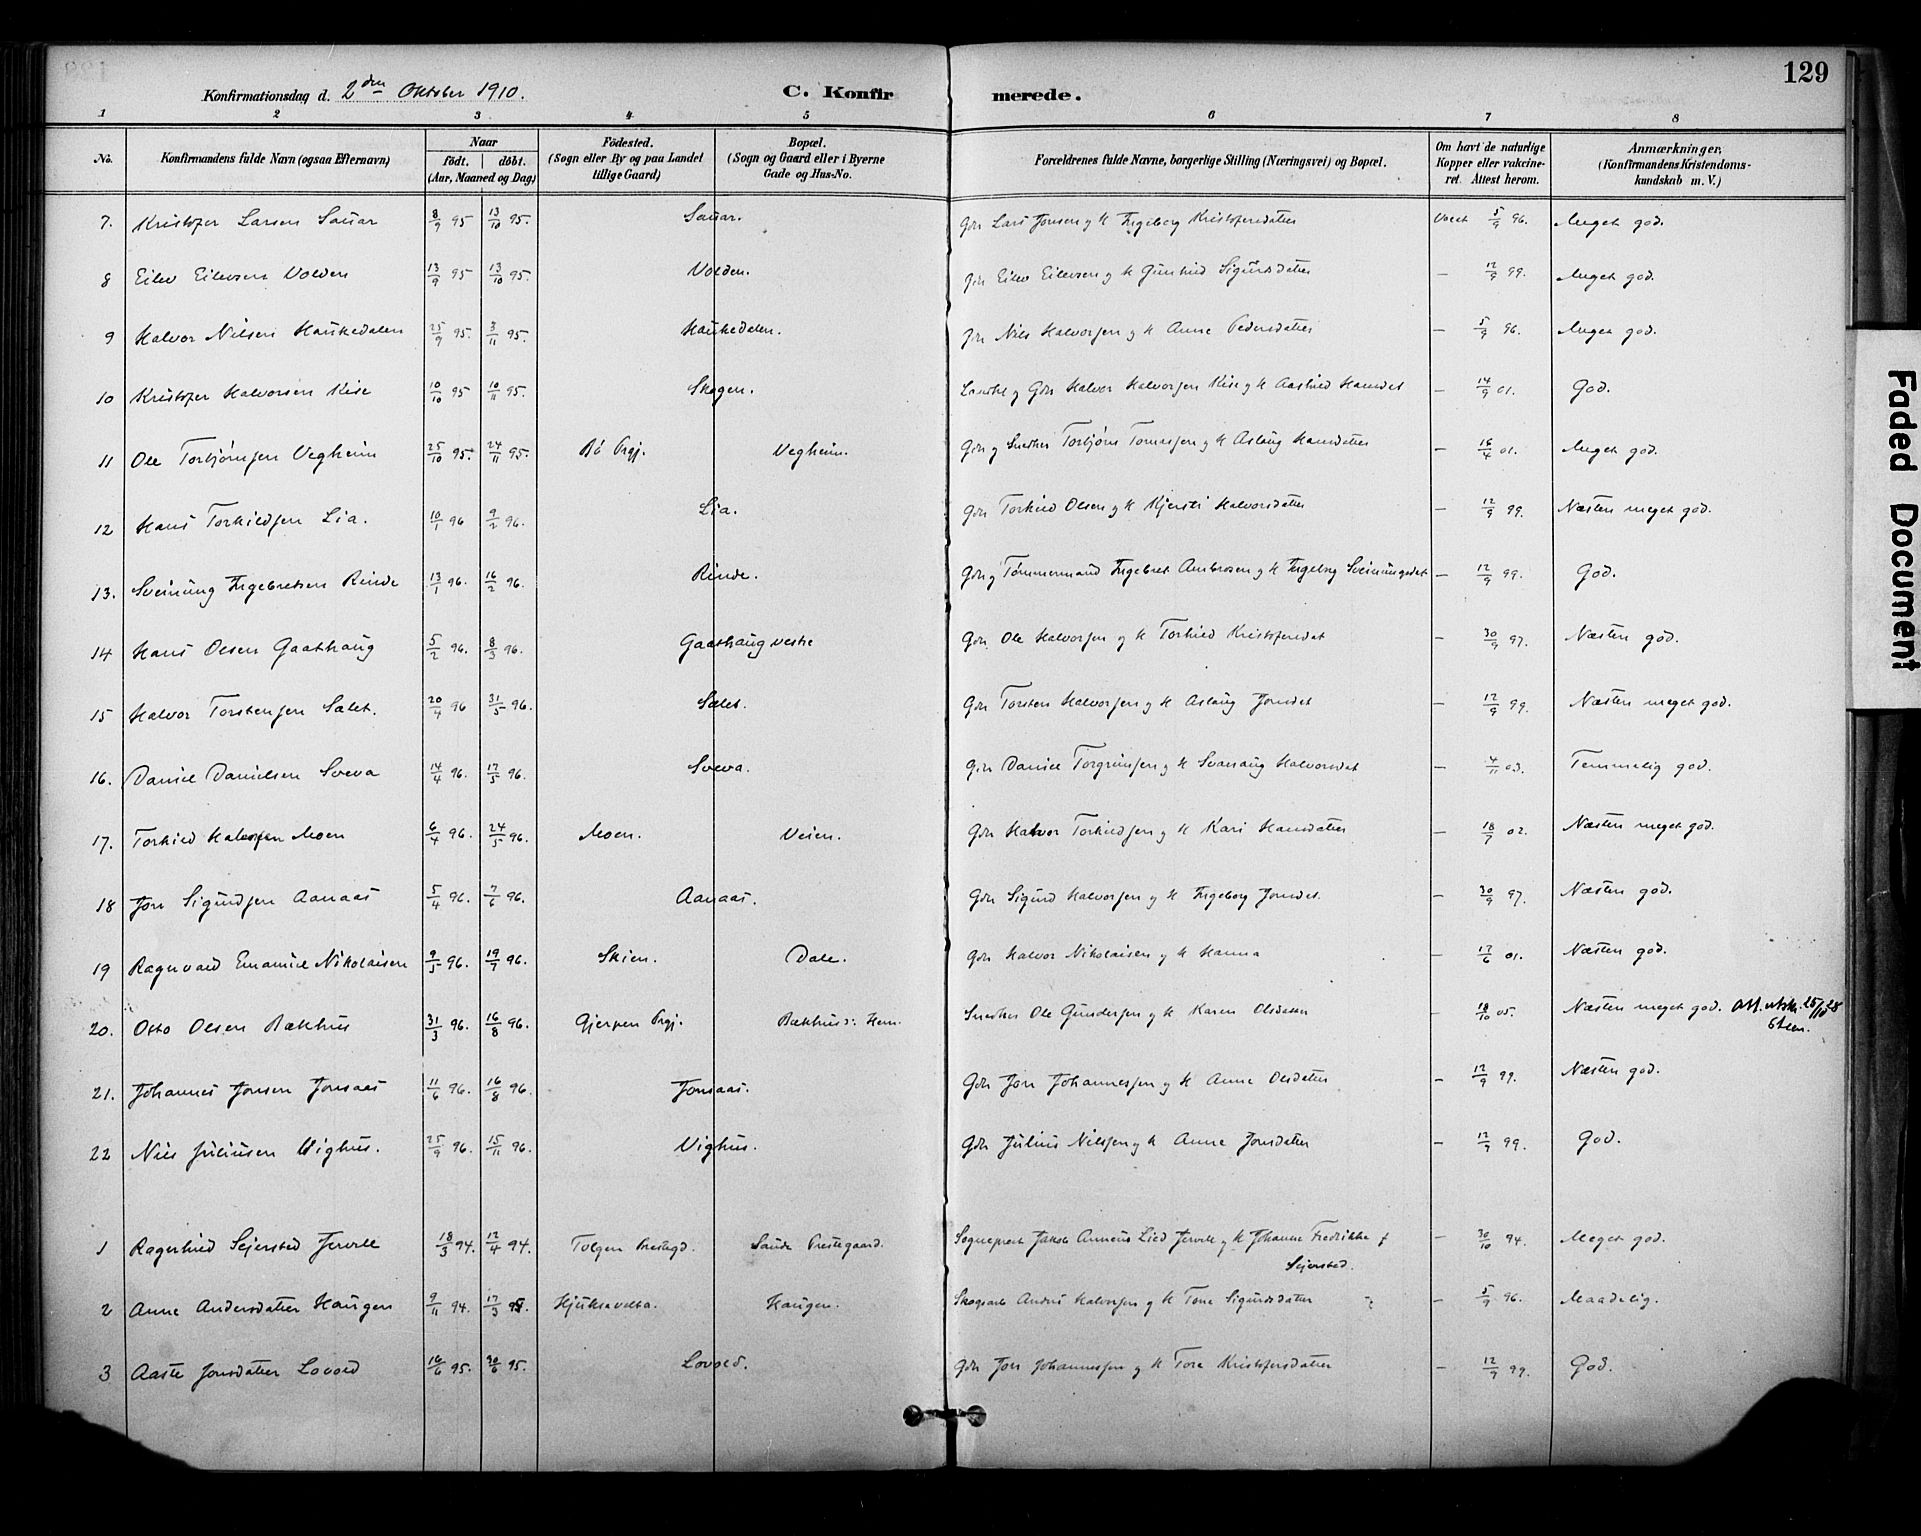 129
Konfirmationsdag d. 2den Oktober 1910. C. Konfirmerede.
1 2 3 4 5 6 7 8
No. Konfirmandens fulde Navn (ogsaa Efternavn) Naar født. døbt. (Aar, Maaned og Dag) Födested. (Sogn eller By og paa Landet tillige Gaard) Bopæl. (Sogn og Gaard eller i Byerne Gade og Hus-No. Forældrenes fulde Navne, borgerlige Stilling (Næringsvei) og Bopæl. Om havt de naturlige Kopper eller vakcineret. Attest herom. Anmærkninger, (Konfirmandens Kristendomskundskab m. V.)
7. Kristofer Larsen Sauar 8/9 95 13/10 95. Sauar. Gdr Lars Jonsen og H Ingeborg Kristofersdatter vacct 5/9 96. Meget god.
8 Eilev Eilevsen Volden 13/9 95 13/10 95. Volden. Gdr Eilev Eilevsen og H Gunhild Sigurdsdatter – 12/9 99. Meget god.
9 Halvor Nilsen Haukedalen 25/9 95 3/11 95. Haukedalen. Gdr Nils Halvorsen og H Anne Pedersdatter – 5/9 96. Meget god.
10 Kristofer Halvorsen Kise 10/10 95 10/11 95. Skogen. Landh og Gdr Halvor Halvorsen Kise og H Aashild Hansdat – 14/9 01. God.
11 Ole Torbjørnsen Vegheim 25/10 95 24/11 95. Bø Prgj. Vegheim. Gdr og Snedker Torbjørn Tomassen og H Aslaug Hansdatter – 16/4 01. Meget god.
12 Hans Torkildsen Lia. 10/1 96 9/2 96. Lia. Gdr Torkild Olsen og H Kjersti Halvorsdatter – 12/9 99. Næsten meget god.
13. Sveinung Ingebretsen Rinde 13/1 96. 16/2 96. Rinde. Gdr og Tømmermand Ingebret Ambrosen og H Ingeborg Sveinungsdat – 12/9 99. God.
14 Hans Olsen Gaathaug 5/2 96. 8/3 96. Gaathaug vestre Gdr Ole Halvorsen og H Torhild Kristofersdat – 30/9 97. Næsten god.
15 Halvor Torstensen Sælet. 20/4 96 31/5 96. Sælet. Gdr Torsten Halvorsen og H Aslaug Jonsdat – 12/9 99. Næsten meget god.
16. Daniel Danielsen Sveva 14/4 96. 17/5 96. Sveva. Gdr Daniel Torgrimsen og H Svanaug Halvorsdat – 4/11 03. Temmelig god.
17. Torkild Halvorsen Moen 6/4 96. 24/5 96. Moen. Veien. Gdr Halvor Torkildsen og H Kari Hansdatter – 18/7 02. Næsten meget god.
18 Jon Sigurdsen Aanaas 5/4 96. 7/6 96. Aanaas. Gdr Sigurd Halvorsen og H Ingeborg Jonsdat. – 30/9 97. Næsten god.
19 Ragnvald Emanuel Nikolaisen 9/5 96. 19/7 96. Skien. Dale. Gdr Halvor Nikolaisen og H Hanna – 17/6 01. Næsten god.
20. Otto Olsen Bækhus 31/3 96. 16/8 96. Gjerpen Prgj. Bækhus Snedker Ole Gundersen og H Karen Olsdatter – 18/10 05. Næsten meget god. Att. utstr. 25/10 28
21. Johannes Jonsen Jonsaas 11/6 96. 16/8 96. Jonsaas. Gdr Jon Johannessen og H Anne Olsdatter – 12/9 99. Næsten god.
22 Nils Juliusen Vighus. 25/9 96. 15/11 96. Vighus. Gdr Julius Nilsen og H Anne Jonsdatter – 12/9 99. God.
1 Ragnhild Sejersted Jervell 18/3 94. 12/4 94. Tolgen Prestegd. Saude Prestegaard. Sogneprest Jakob Anneus Lied Jervell og H Johanne Fredrikke f – 30/10 94. Meget god.
Sejersted.
2 Anne Andersdatter Haugen 9/11 94. 17/3 95. Hjuksevelta. Haugen. Skogsarb Anders Halvorsen og H Tone Sigurdsdatter – 5/9 96. Maadelig.
3 Aaste Jonsdatter Lovold 16/6 95. 30/6 95. Lovold. Gdr Jon Johannessen og H Tore Kristofersdatter – 12/9 99. God.
Faded Document